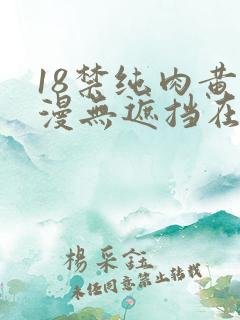 18禁纯肉黄
漫無遮挡在
杨采钰
未经同意禁止转载